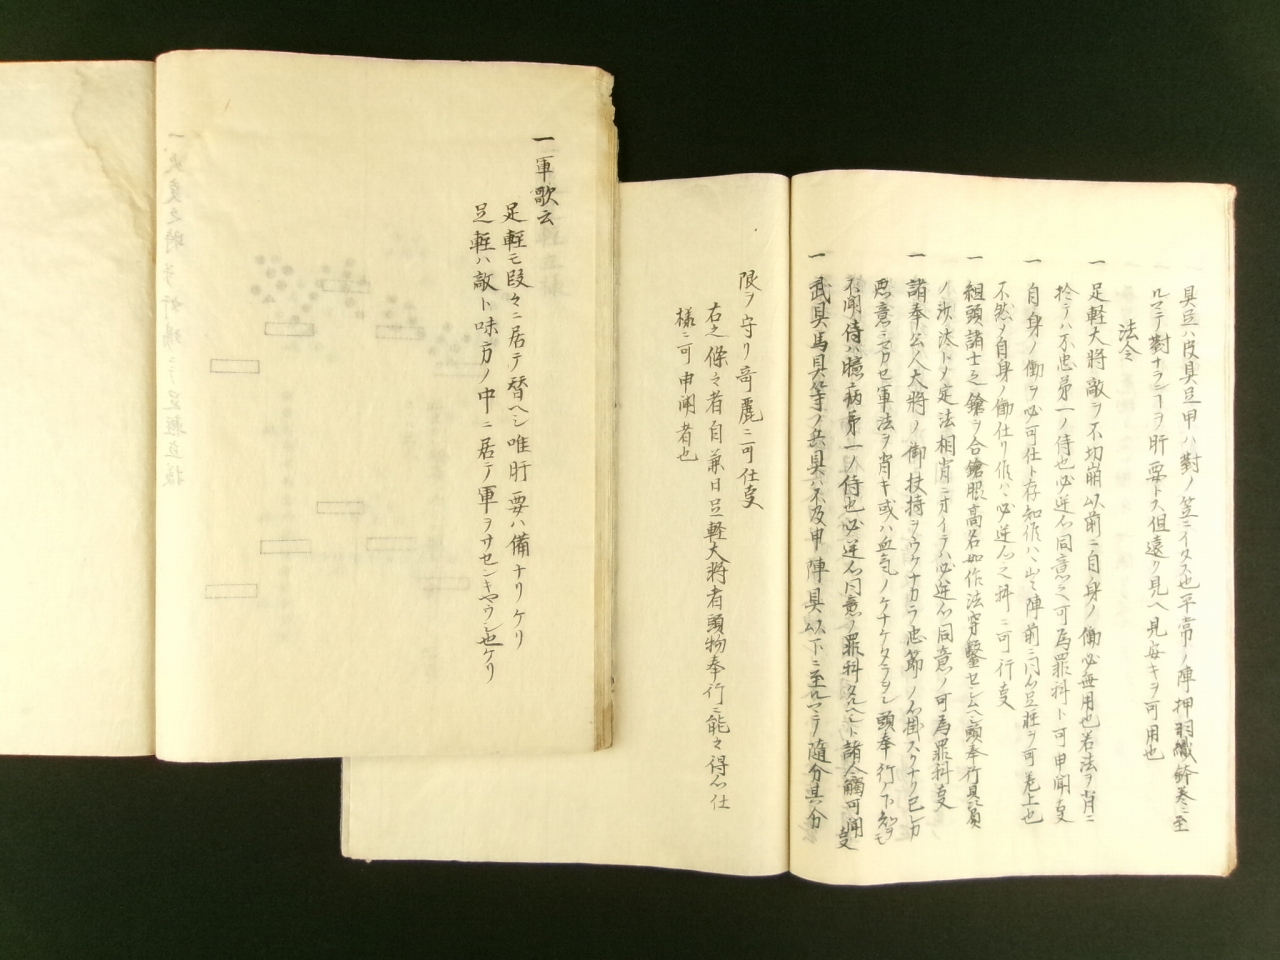 具足ハ皮具足甲ハ對ノ笠ニイタス也平常ノ陣押羽織鉢巻ニ至
ルマテ對ナランヿヲ肝要トス但遠ク見ヘ見安キヲ可用也
法令
一 足軽大將敵ヲ不切崩以前ニ自身ノ働必無用也若法ヲ背ニ
於テハ不忠第一ノ侍也必逆心同意之可為罪科ト可申聞夏
一 自身ノ働ヲ必可仕ト存知作ハ陣前ニ心足軽ヲ可巻上也
不然ノ自身ノ働仕リ作ハ必逆心之科ニ可行夏
一 組頭諸士之鎗ヲ合鎗脇高名如作法穿鑿セシムヘシ頭奉行具
ノ沙汰トメ定法相背ニオイテハ必逆心同意ノ可為罪科夏
一 諸奉公人大將ノ御扶持ヲウケナカラ忠節ノ心掛スクナク己カ
悪意ニマカセ軍法ヲ背キ或ハ血気ノケナケタラヲシ頭奉行ノ下知ヲモ
不聞侍ハ臆病第一ノ侍也必逆心同意ノ罪科タルヘシト諸人觸可聞夏
一 武具馬具等ノ兵具ハ不及申陣具以下ニ至ルマテ随分其分
限ヲ守リ奇麗ニ可仕夏
右之條々者自兼日足軽大將者頭物奉行ニ能々得心仕
様ニ可申聞者也
一 軍歌云
足軽モ段々ニ居テ替ヘシ唯肝要ハ備ナリケリ
足軽ハ敵ト味方ノ中ニ居テ軍ヲサセンキヤウシ也ケリ